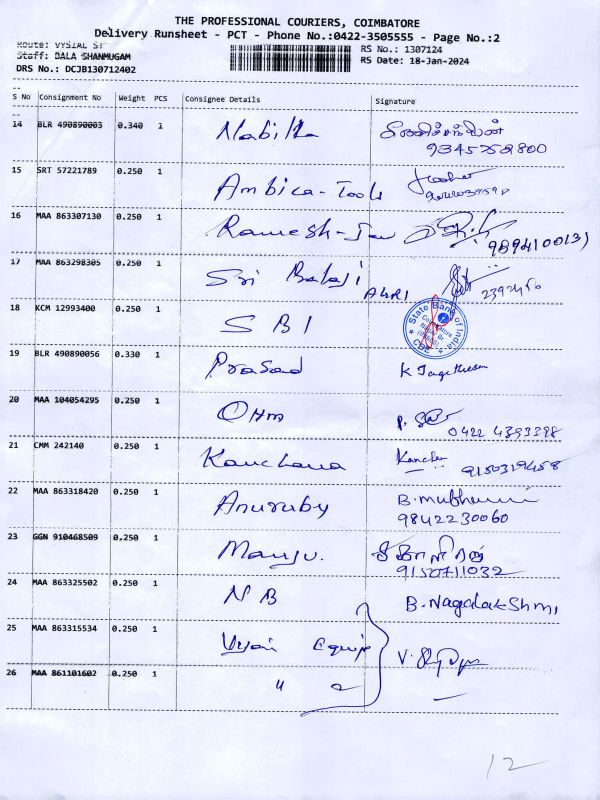 THE PROFESSIONAL COURIERS, COIMBATORE
Delivery Runsheet - PCT - Phone No.:0422-3505555 - Page No.:2
Route: VYSIAL ST
Staff: BALA SHANMUGAM
DRS No.: DCJB130712402
RS No.: 1307124
RS Date: 18-Jan-2024
S No Consignment No Weight PCS Consignee Details Signature
14 BLR 490890003 0.340 1 Nabilla
9345752800
15 SRT 57221789 0.250 1 Ambica-Tools
16 MAA 863307130 0.250 1 Ramesh-
9894100131
17 MAA 863298305 0.250 1 Sri Balaji
2392450
18 KCM 12993400 0.250 1 SBI
State Bank of India
CBE
19 BLR 490890056 0.330 1 Prasad K
20 MAA 104054295 0.250 1 OHM P.
0422 4393398
21 CMM 242140 0.250 1 Kanchana Kanchan
9150319458
22 MAA 863318420 0.250 1 Anuruby B.
9842230060
23 GGN 910468509 0.250 1 Manju.
9150711032
24 MAA 863325502 0.250 1 NB B. Nagalakshmi
25 MAA 863315534 0.250 1 Equip V.
26 MAA 861101602 0.250 1 "
12